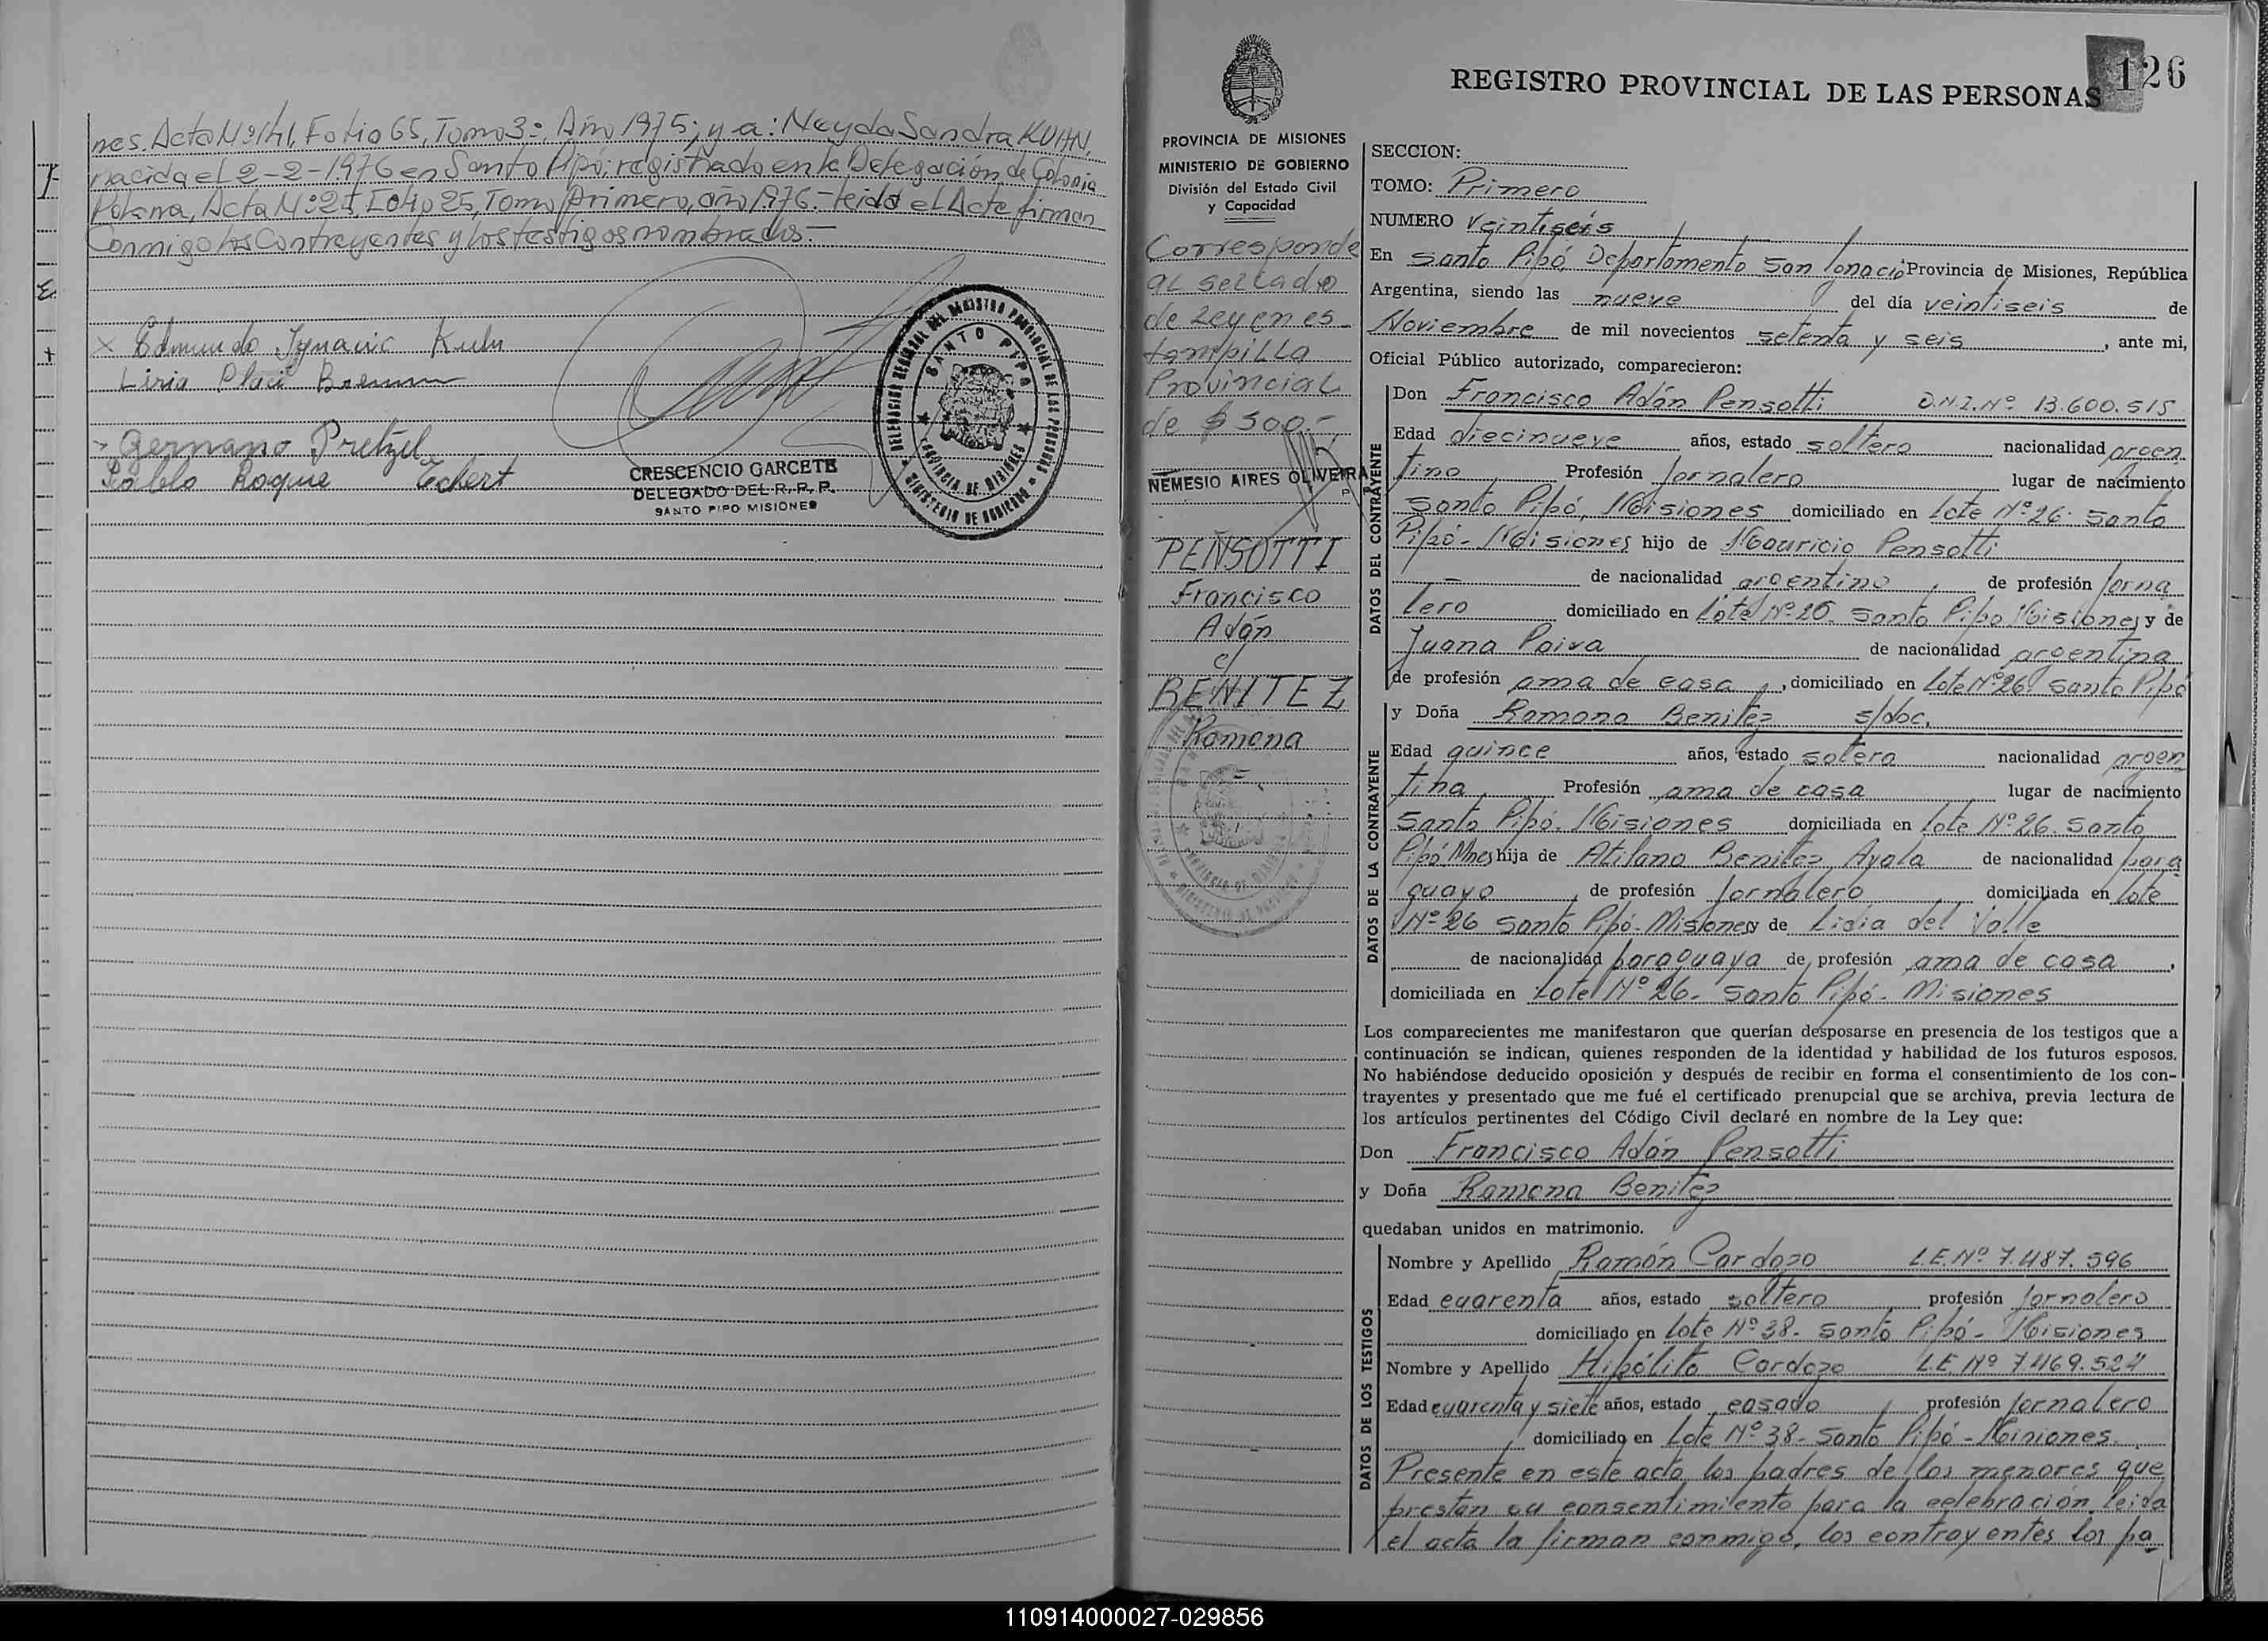 nes. Acta Nº 141, Folio 65, Tomo 3º Año 1975; y a: Neyda Sandra KUHN,
nacida el 2-2-1976 en Santo Pipó; registrado en la Delegación de Colonia
Polana, Acta Nº 25 Folio 25, Tomo Primero, año 1976.- leida el Acta firman
Conmigo los Contrayentes y los testigos nombrados.-
x Edmundo Ignacio Kuhn
Liria Placi
Germano Pretzel
Pablo Roque Eckert
CRESCENCIO GARCETE
DELEGADO DEL R. P. P.
SANTO PIPO MISIONES
DELEGACION REGIONAL DEL REGISTRO PROVINCIAL DE LAS PERSONAS
SANTO PIPO
PROVINCIA DE MISIONES
MINISTERIO DE GOBIERNO
126
REGISTRO PROVINCIAL DE LAS PERSONAS
PROVINCIA DE MISIONES
MINISTERIO DE GOBIERNO
División del Estado Civil
y Capacidad
Corresponde
al sellado
de Ley en es-
tampilla
Provincial
de $ 300.-
NEMESIO AIRES OLIVEIRA
PENSOTTI
Francisco
Adán
c/
BENITEZ
Ramona
SECCION:
TOMO: Primero
NUMERO Veintiseis
En Santo Pipó, Departamento San Ignacio Provincia de Misiones, República
Argentina, siendo las nueve del día veintiseis de
Noviembre de mil novecientos setenta y seis, ante mi,
Oficial Público autorizado, comparecieron:
DATOS DEL CONTRAYENTE
Don Francisco Adán Pensotti D.N.I. Nº 13.600.515
Edad diecinueve años, estado soltero nacionalidad argen
tino Profesión Jornalero lugar de nacimiento
Santo Pipó, Misiones domiciliado en Lote Nº 26. Santo
Pipó - Misiones hijo de Mauricio Pensotti
- de nacionalidad argentino, de profesión Jorna
lero domiciliado en Lote Nº 26 Santo Pipó Misiones y de
Juana Paiva de nacionalidad argentina
de profesión ama de casa, domiciliado en Lote Nº 26. Santo Pipó
DATOS DE LA CONTRAYENTE
y Doña Ramona Benitez s/doc.
Edad quince años, estado soltera nacionalidad argen
tina Profesión ama de casa lugar de nacimiento
Santo Pipó. Misiones domiciliada en Lote Nº 26. Santo
Pipó Mnes hija de Atilano Benitez Ayala de nacionalidad para
guayo, de profesión Jornalero, domiciliada en Lote
Nº 26 Santo Pipó - Misiones y de Lidia del Valle
de nacionalidad paraguaya de profesión ama de casa,
domiciliada en Lote Nº 26. Santo Pipó - Misiones
Los comparecientes me manifestaron que querían desposarse en presencia de los testigos que a
continuación se indican, quienes responden de la identidad y habilidad de los futuros esposos.
No habiéndose deducido oposición y después de recibir en forma el consentimiento de los con-
trayentes y presentado que me fué el certificado prenupcial que se archiva, previa lectura de
los artículos pertinentes del Código Civil declaré en nombre de la Ley que:
Don Francisco Adán Pensotti
y Doña Ramona Benitez
quedaban unidos en matrimonio.
DATOS DE LOS TESTIGOS
Nombre y Apellido Ramón Cardozo L.E. Nº 7.487.596
Edad cuarenta años, estado soltero profesión Jornalero
domiciliado en Lote Nº 38. Santo Pipó - Misiones
Nombre y Apellido Hipólito Cardozo L.E. Nº 7.469.524
Edad cuarenta y siete años, estado casado, profesión Jornalero
domiciliado en Lote Nº 38 - Santo Pipó - Misiones.
Presente en este acto los padres de los menores que
prestan su consentimiento para la celebración. leida
el acta la firman conmigo, los contrayentes los pa_
110914000027-029856